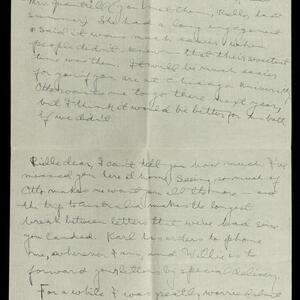 Mrs. you met them, Rulle, last
summer) She had a long engagement
& said it was much easier when
people didn't know that their sweetest
time was then. It will be much easier
for going you are at Chicago University
Otto wants me to go there next year,
but I think it would be better for us both
if we didn't.
Rulle dear, I can't tell you how much I've
missed you here at home! Seeing so much of
Otto makes me want you all the more — and
the trip to Australia makes the longest
break between letters that we've had since
you landed. Karl has orders to phone
me, wherever I am, and Willie is to
forward your letters by special delivery.
For a while I was greatly worried about